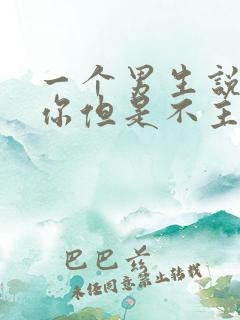 一个男生说
你但是不主
巴巴爸
未经同意禁止转载